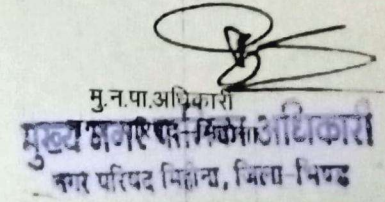 मु.न.पा.अधिकारी
मुख्य नगर अधिकारी
नगर परिषद मिहोना, जिला-भिण्ड